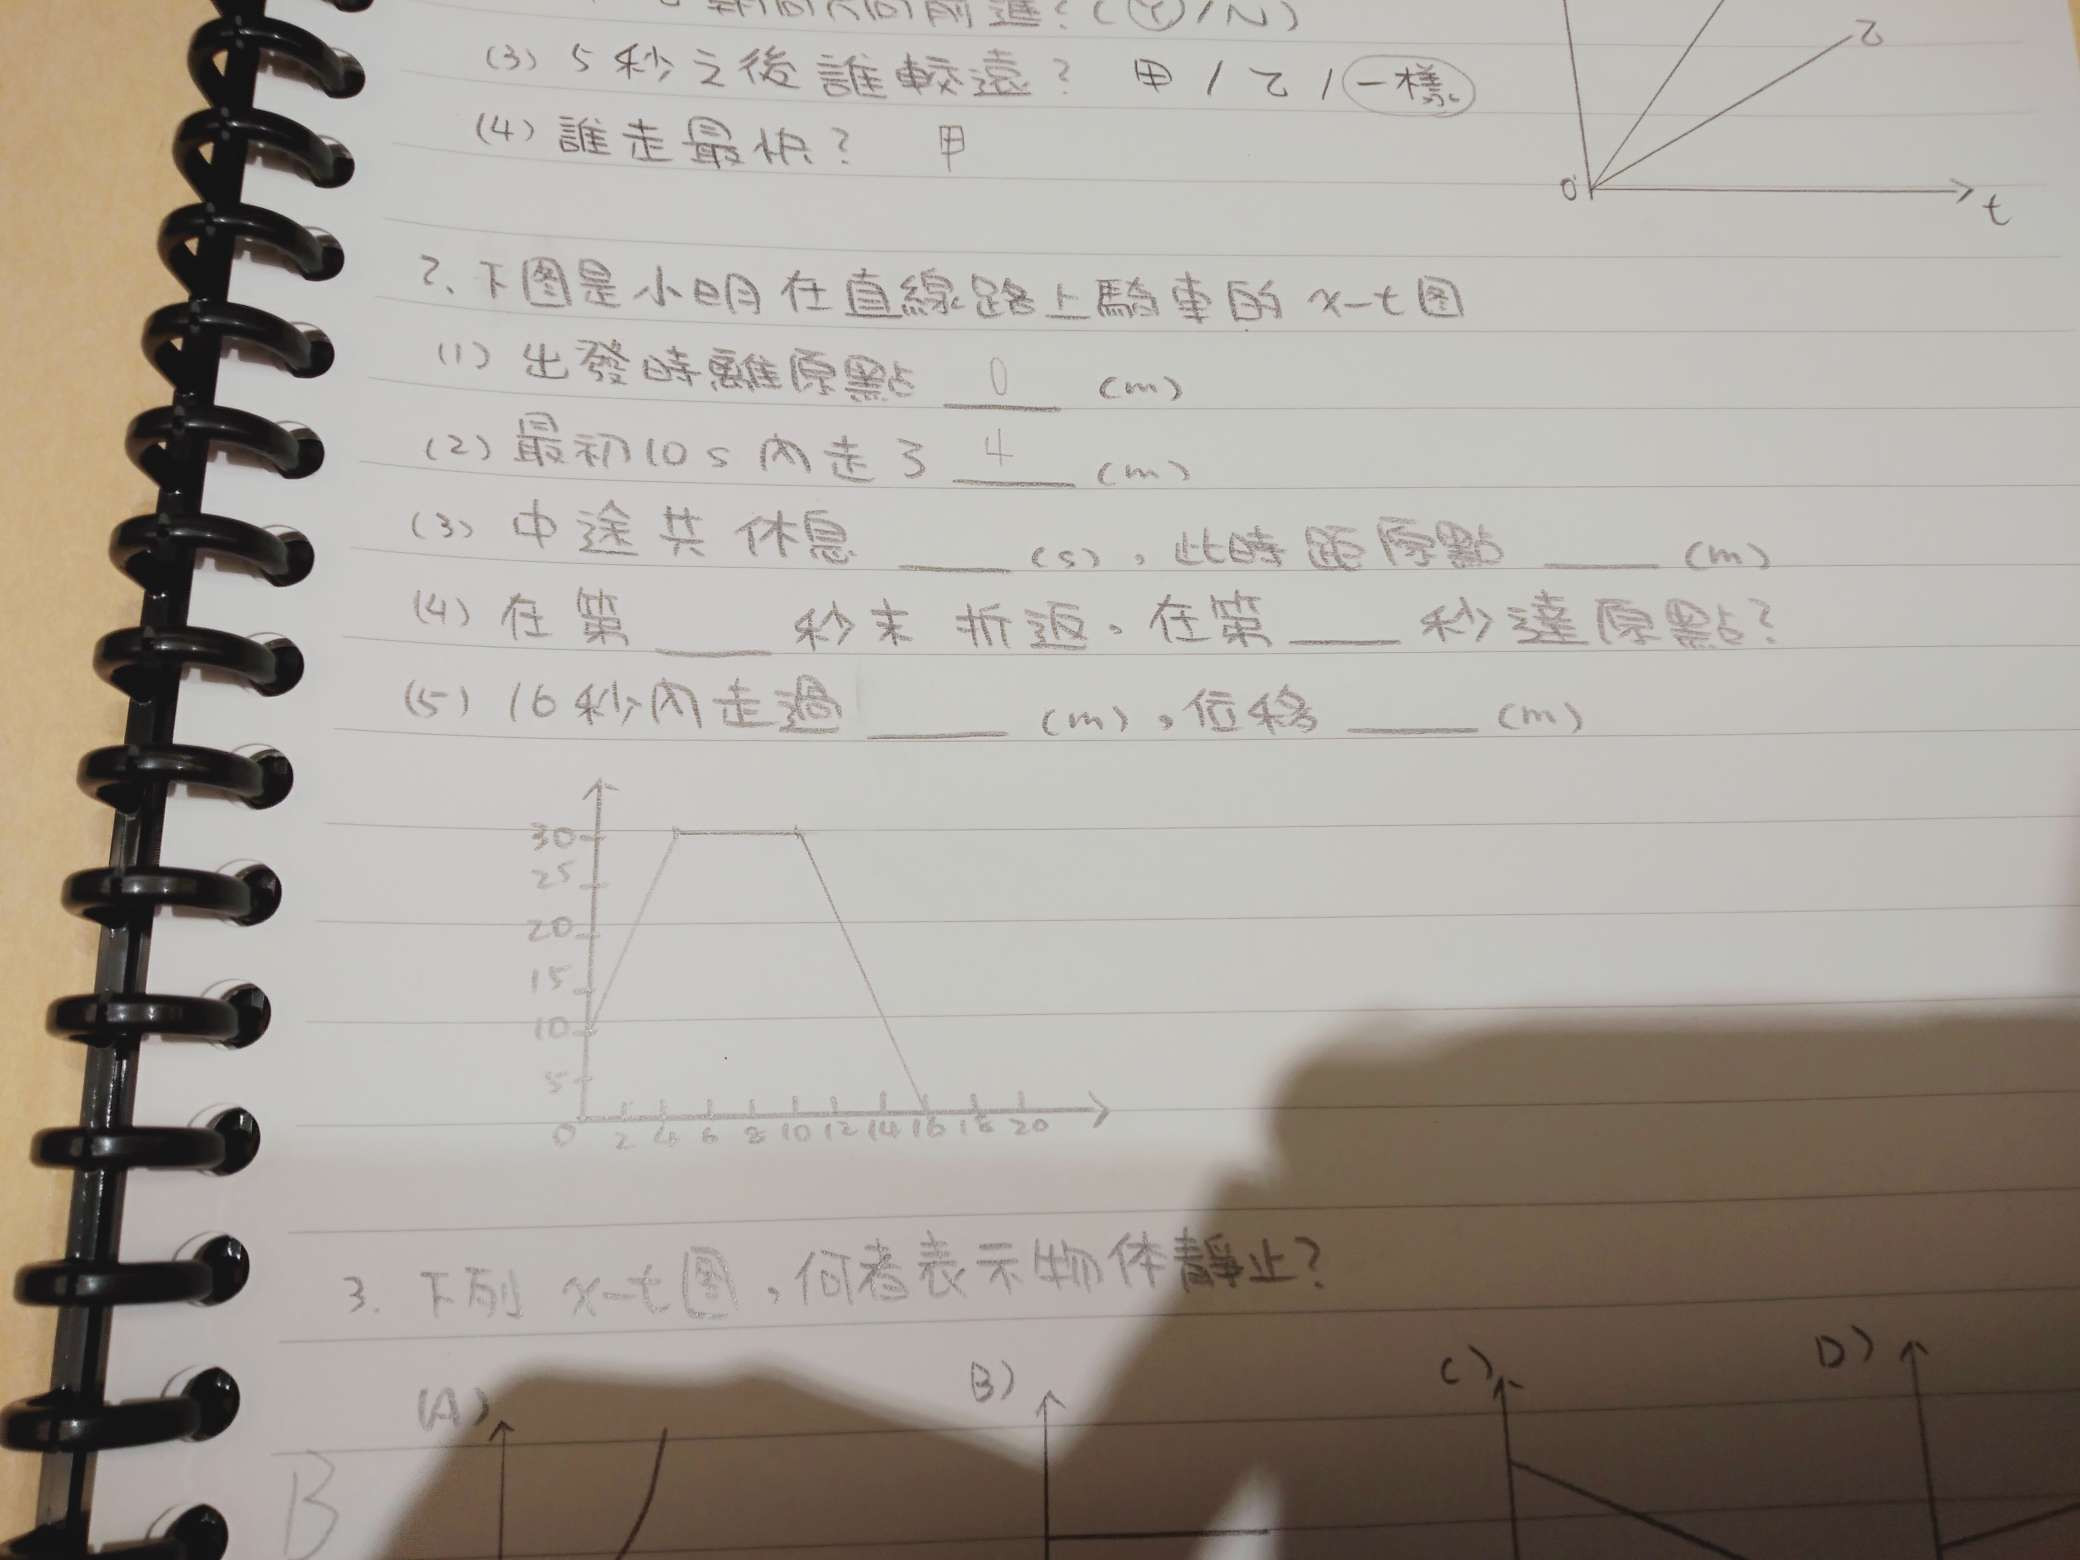 前進?(Ⓨ/N)
(3) 5秒之後誰較遠? 甲/乙/一樣
(4) 誰走最快? 甲
乙
0
t
2、下图是小明在直線路上騎車的 x-t图
(1) 出發時離原點 0 (m)
(2) 最初10s內走3 4 (m)
(3) 中途共休息 ____ (s),此時距原點 ____ (m)
(4) 在第 ____ 秒末折返。在第 ____ 秒達原點?
(5) 16秒內走過 ____ (m),位移 ____ (m)
30
25
20
15
10
5
0 2 4 6 8 10 12 14 16 18 20
3. 下列 x-t图,何者表示物体靜止?
(A) B) C) D)
B